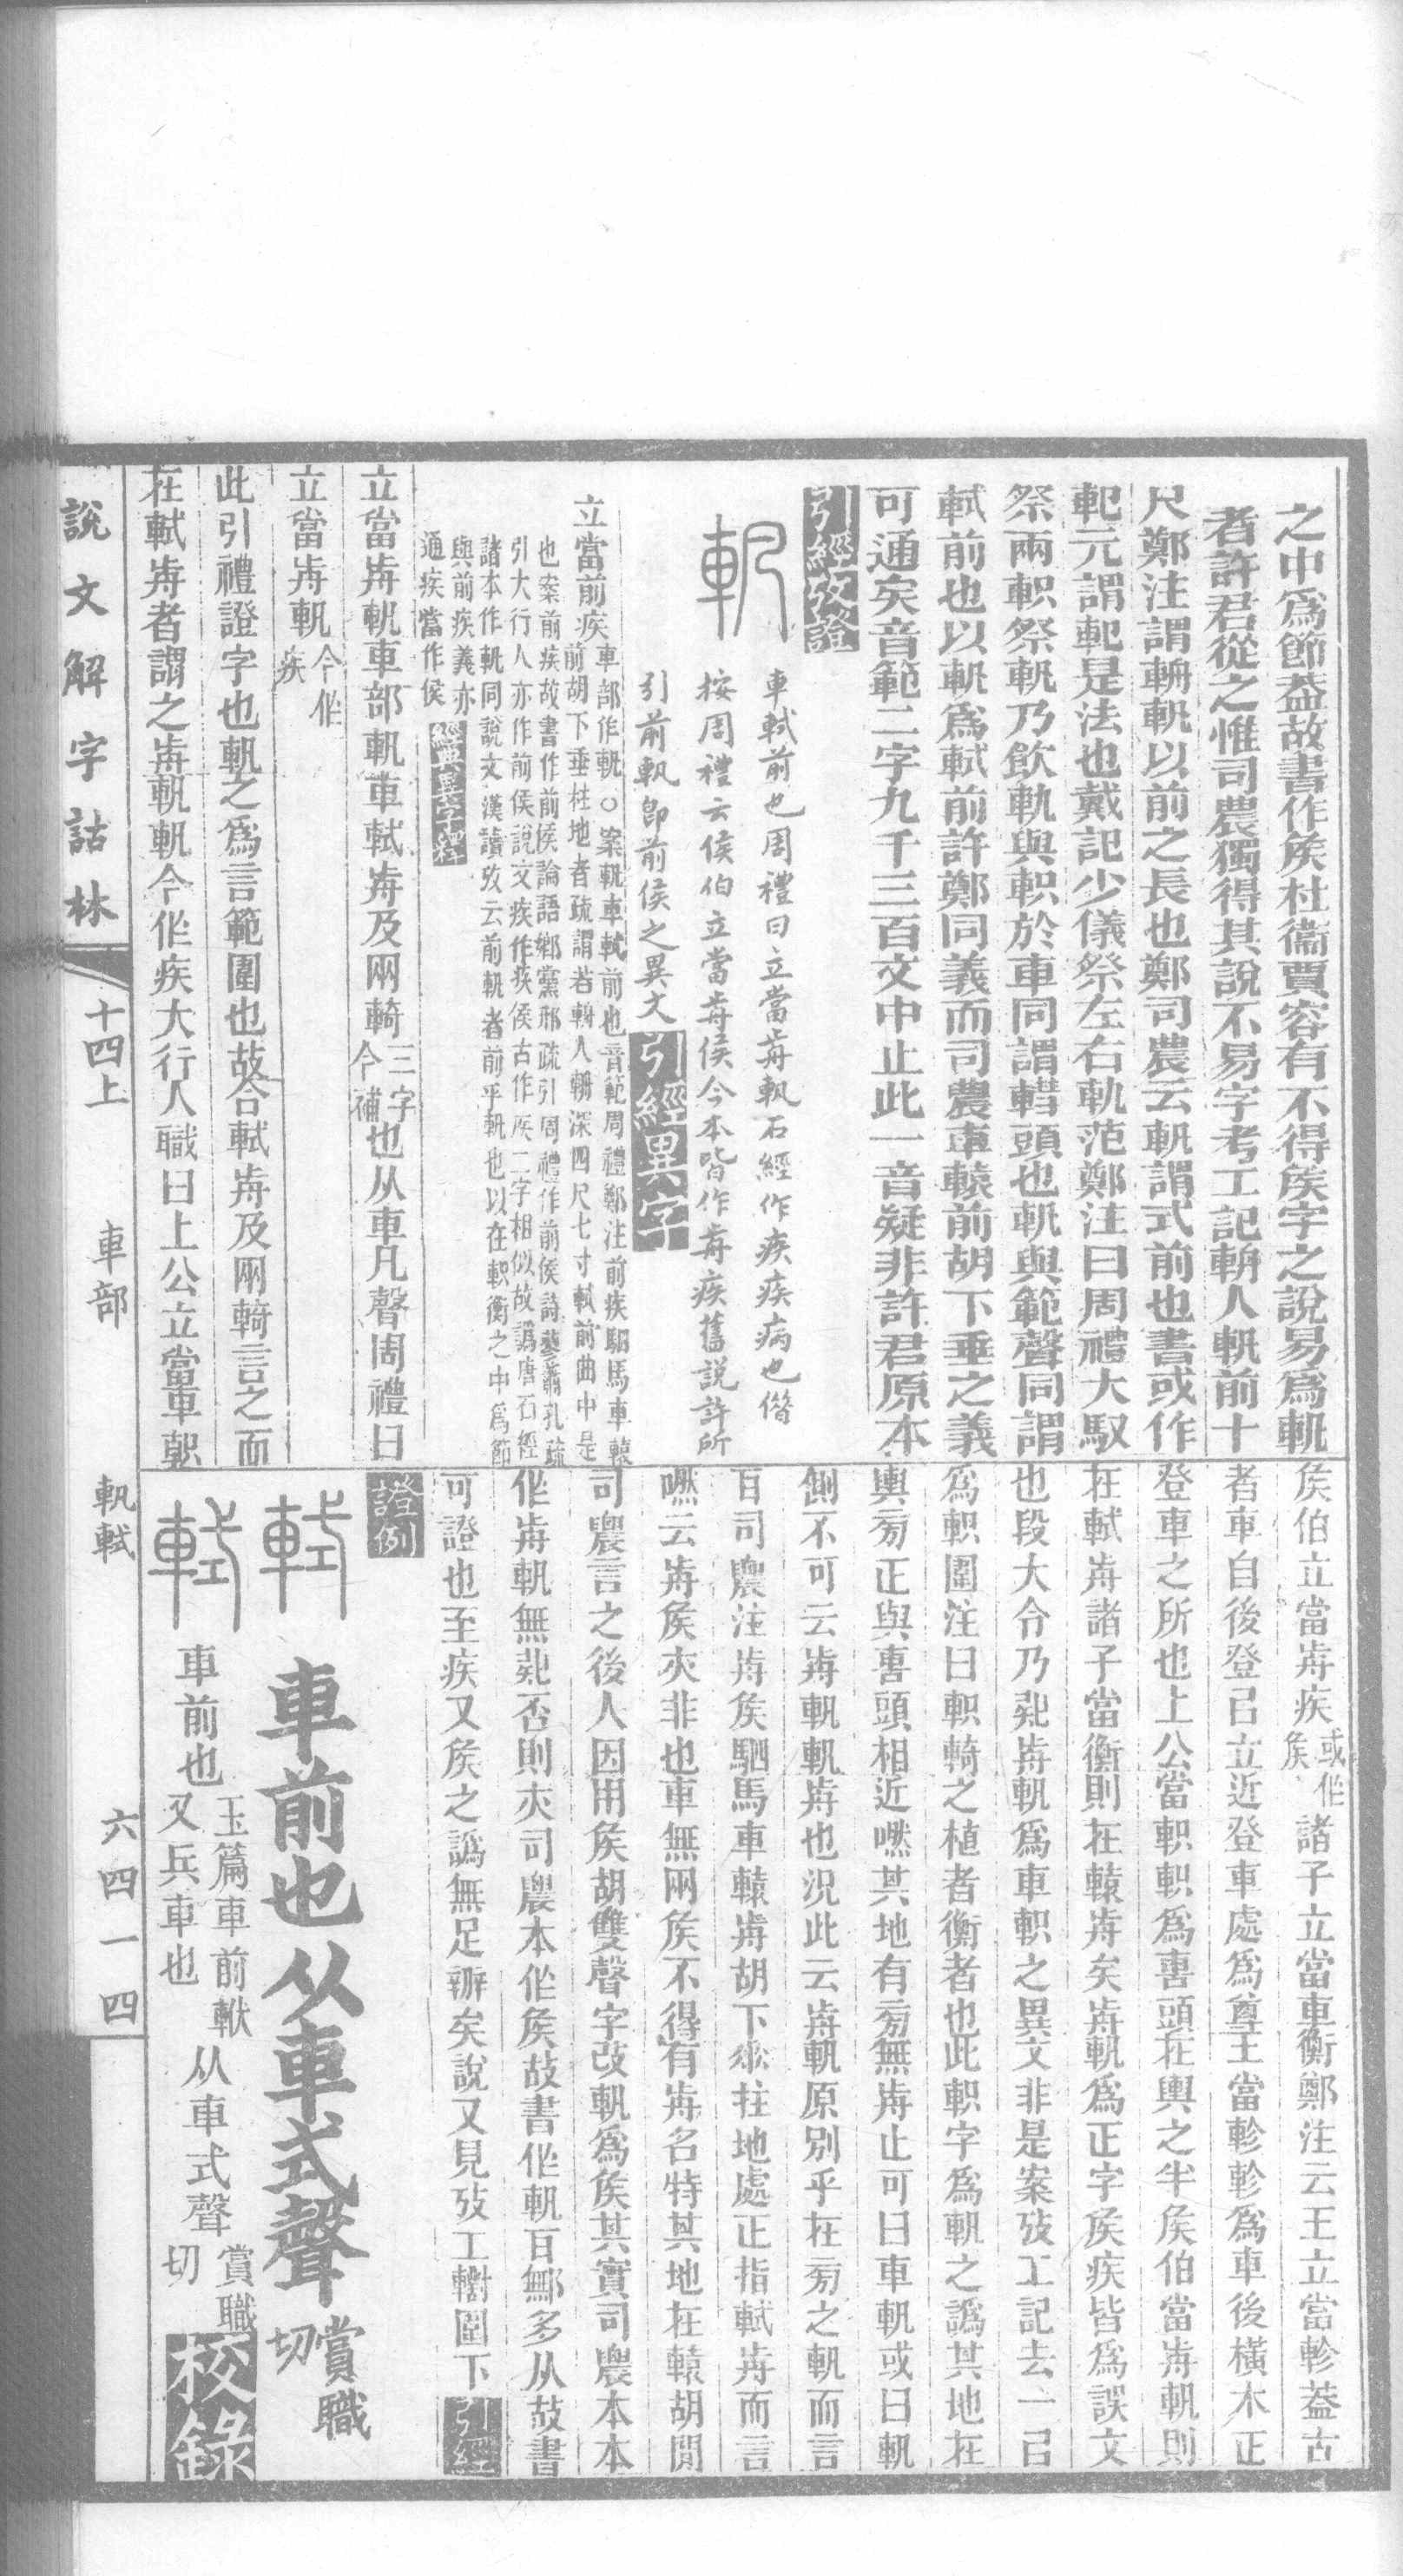 之中爲節葢故書作矦杜衞賈容有不得矦字之說易爲軓
者許君從之惟司農獨得其說不易字考工記輈人軓前十
尺鄭注謂輈軓以前之長也鄭司農云軓謂式前也書或作
軋元謂軓是法也戴記少儀祭左右軌范鄭注曰周禮大馭
祭兩軹祭軓乃飮軌與軹於車同謂轊頭也軓與範聲同謂
軾前也以軓爲軾前許鄭同義而司農車轅前胡下垂之義
可通矣音範二字九千三百文中止此一音疑非許君原本
引經攷證
軓
車軾前也周禮曰立當歬軓石經作疾疾病也偺
按周禮云侯伯立當歬侯今本皆作歬疾舊說許所
引前軓卽前侯之異文
引經異字
立當前疾
車部作軓○案軓車軾前也音範周禮鄭注前疾駟馬車轅
前胡下垂柱地者疏謂若輈人輈深四尺七寸軾前曲中是
也案前疾故書作前侯論語鄉黨邢疏引周禮作前侯詩蓼蕭孔疏
引大行人亦作前侯說文疾作𤕫侯古作矦二字相似故譌唐石經
諸本作軓同說文漢讀攷云前軓者前乎軓也以在軹衡之中爲節
與前疾義亦
通疾當作侯
立當歬軓車部軓車軾歬及兩輢
三字
今補
也从車凡聲周禮曰
立當歬軓
今作
疾
此引禮證字也軓之爲言範圍也故合軾歬及兩輢言之而
在軾歬者謂之歬軓軓今作疾大行人職曰上公立當車軹
矦伯立當歬疾
或作
矦
諸子立當車衡鄭注云王立當軫葢古
者車自後登已立近登車處爲尊王當軫軫爲車後橫木正
登車之所也上公當軹軹爲軎頭在輿之半矦伯當歬軓則
在軾歬諸子當衡則在轅歬矣歬軓爲正字矦疾皆爲誤文
也段大令乃疑歬軓爲車軹之異文非是案攷工記去一已
爲軹圍注曰軹輢之植者衡者也此軹字爲軓之譌其地在
輿旁正與軎頭相近嘫其地有旁無歬止可曰車軓或曰軓
側不可云歬軓軓歬也況此云歬軓原別乎在旁之軓而言
百司農注歬矦駟馬車轅歬胡下𠂹拄地處正指軾歬而言
嘫云歬矦亦非也車無兩矦不得有歬名特其地在轅胡閒
司農言之後人因用矦胡雙聲字改軓爲矦其實司農本本
作歬軓無疑否則亦司農本作矦故書作軓百鄭多从故書
可證也至疾又矦之譌無足辨矣說又見攷工轛圍下
引經
證例
軾
車前也从車式聲
賞職
切
軾
車前也
玉篇車前軾
又兵車也
从車式聲
賞職
切
校錄
說文解字詁林
十四上
車部
軓軾
六四一四